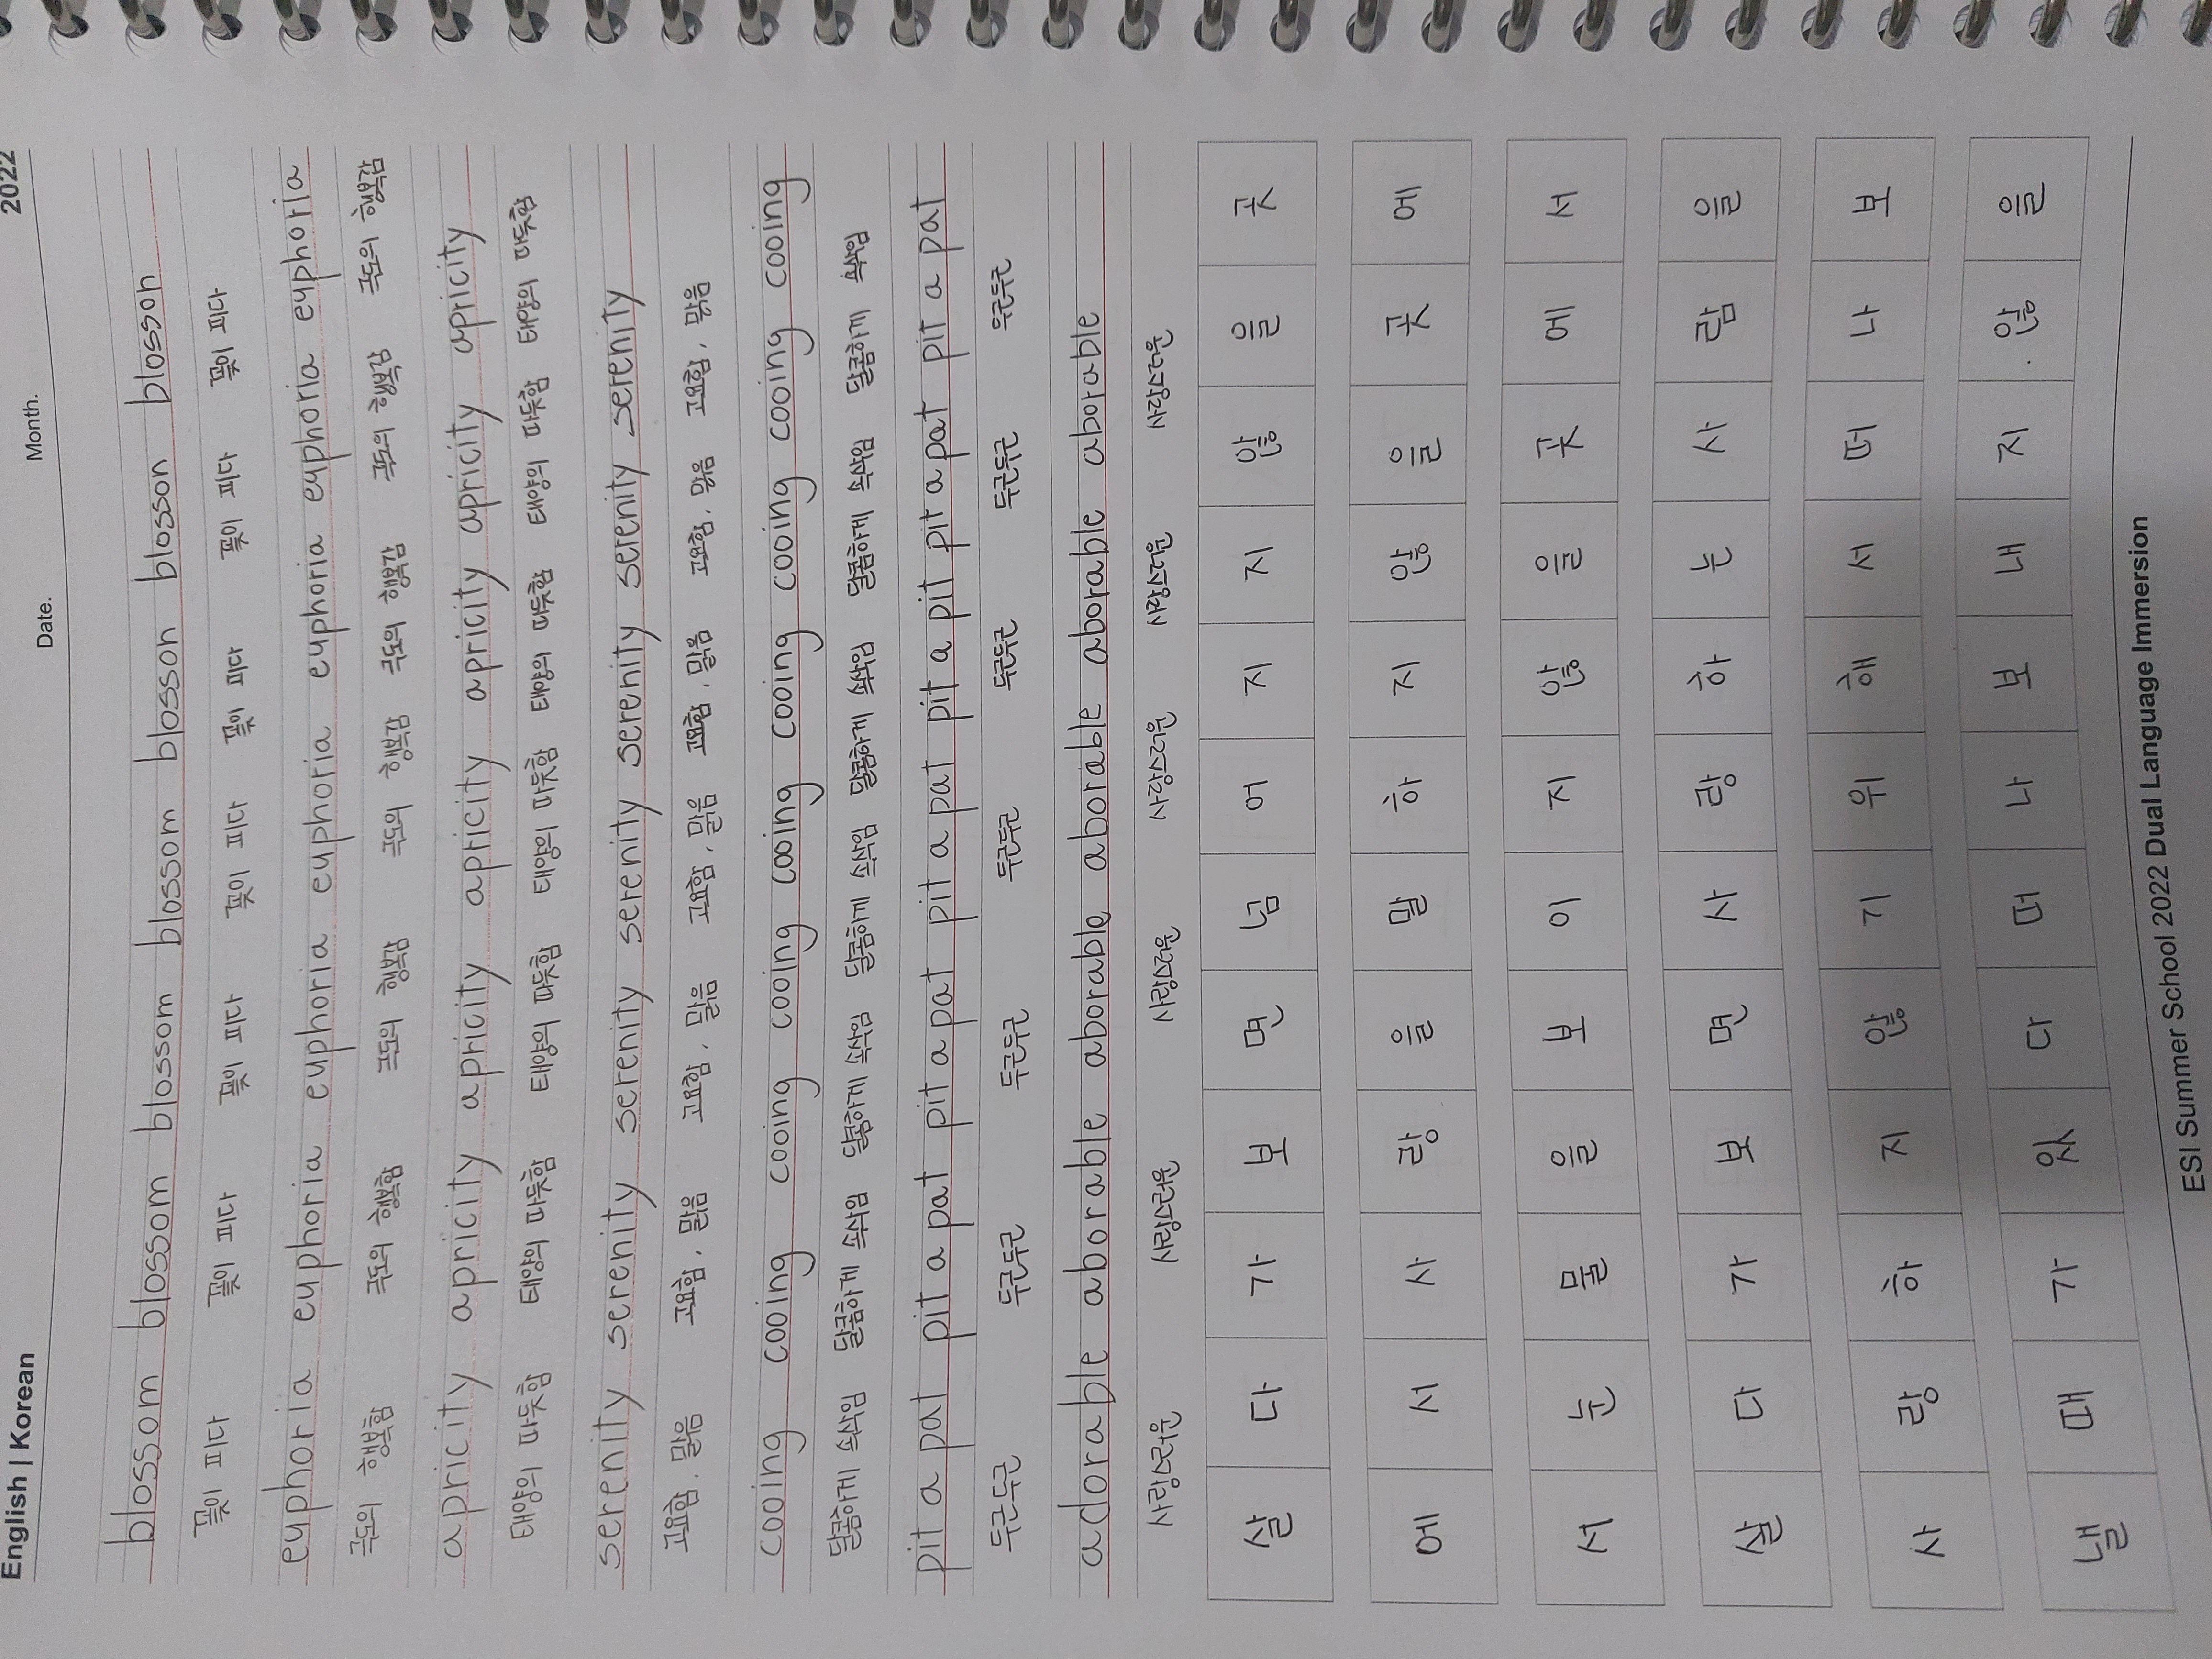 English | Korean Date. Month. 2022
blossom blossom blossom blossom blosson blosson blosson
꽃이 피다 꽃이 피다 꽃이 피다 꽃이 피다 꽃이 피다 꽃이 피다 꽃이 피다
euphoria euphoria euphoria euphoria euphoria euphoria euphoria
극도의 행복함 극도의 행복함 극도의 행복감 극도의 행복감 극도의 행복감 극도의 행복감 극도의 행복감
apricity apricity apricity apricity apricity apricity apricity
태양의 따뜻함 태양의 따뜻함 태양의 따뜻함 태양의 따뜻함 태양의 따뜻함 태양의 따뜻함 태양의 따뜻함
serenity serenity serenity serenity serenity serenity serenity
고요함, 맑음 고요함, 맑음 고요함, 맑음 고요함, 맑음 고요함, 맑음 고요함, 맑음 고요함, 맑음
cooing cooing cooing cooing cooing cooing cooing cooing cooing
달콤하게 속삭임 달콤하게 속삭임 달콤하게 속삭임 달콤하게 속삭임 달콤하게 속삭임 달콤하게 속삭임 달콤하게 속삭임
pit a pat pit a pat pit a pat pit a pat pit a pit pit a pat pit a pat
두근두근 두근두근 두근두근 두근두근 두근두근 두근두근 두근두근
adorable aborable aborable aboraple aqorable aborable
사랑스러운 사랑스러운 사랑스러운 사랑스러운 사랑스러운 사랑스러운
살다가보면넘어지지않을곳
에서사랑을말하지않을곳에
서눈물을보이지않을곳에서
살다가보면사랑하는사람을
사랑하지않기위해서떠나보
낼때가있다떠나보내지않을
ESI Summer School 2022 Dual Language Immersion